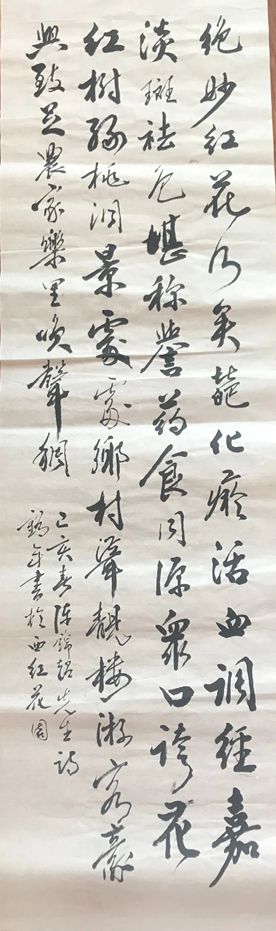 绝妙红花乃美葩化瘀活血调经嘉
淡斑祛色堪称誉药食同源众口夸花
红树绿桃洞景处处乡村耸靓楼游客豪
兴致足农家乐里唤声稠
己亥春陈锦铭先生诗
鹤年书于西红花园